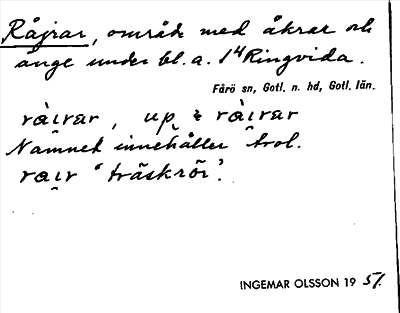 Råjrar, område med åkrar och
änge under bl. a. 1⁴ Ringvida.
Fårö sn, Gotl. n. hd, Gotl. län.
ràιrar, up ràιrar
Namnet innehåller trol.
raιr "träskrör".
INGEMAR OLSSON 19 51.